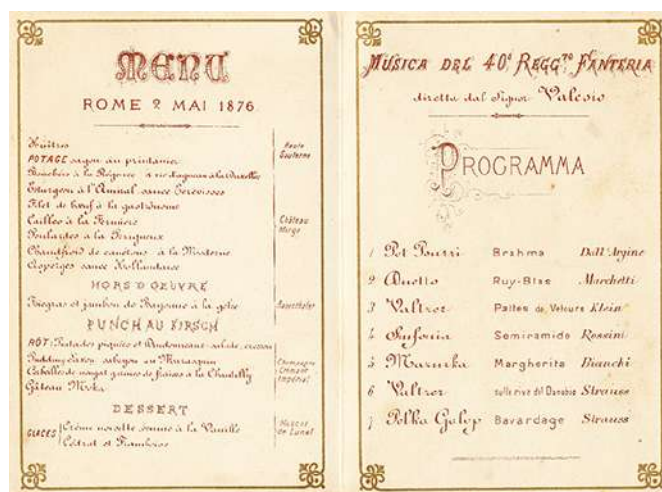 MENU
ROME 2 MAI 1876
Huîtres
POTAGE sagou au printanier
Bouchées à la Régence à la Duxelles
Esturgeon à l'Amiral sauce Ecrevisses
Filet de bœuf à la gastronome
Cailles à la Fermière
Poulardes à la Périgueux
Chaudfroid de canetons à la Moderne
Asperges sauce Hollandaise
HORS D'ŒUVRE
Foiegras et jambon de Bayonne à la gelée
PUNCH AU KIRSCH
RÔT: Pintades piquées et salade, cresson
Pudding saxon sabayon au Marasquin
Corbeilles de nougat garnies de fraises à la Chantilly
Gâteau Moka
DESSERT
GLACES Crème noisette à la Vanille
Cédrat et Framboise
Haute
Sauterne
Château
Margo
Champagne
Crémant
Impérial
Muscat
de Lunel
MUSICA DEL 40º REGGTO FANTERIA
diretta dal Signor Valesio
PROGRAMMA
1 Pot Pourri Brahma Dall'Argine
2 Duetto Ruy-Blas Marchetti
3 Valtzer Pattes de Velours Klein
4 Sinfonia Semiramide Rossini
5 Mazurka Margherita Bianchi
6 Valtzer sulle rive del Danubio Strauss
7 Polka Galop Bavardage Strauss